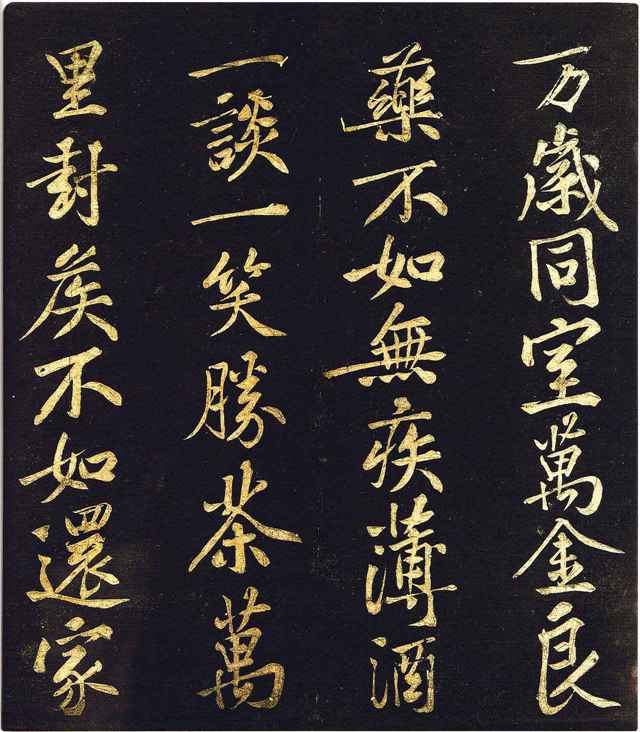 万歲同室萬金良
藥不如無疾薄酒
一談一笑勝茶萬
里封矦不如還家